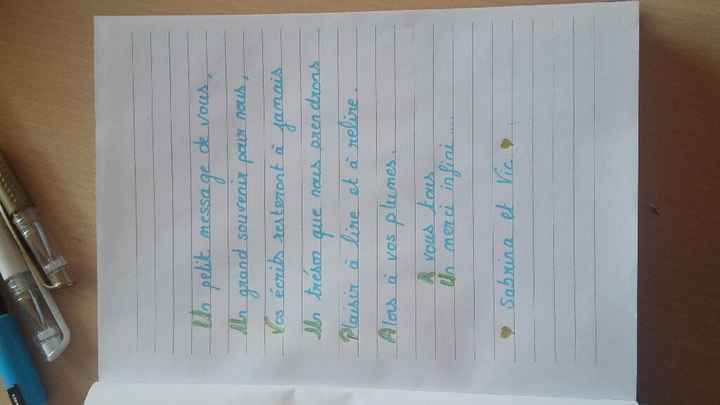 Un petit message de vous,
Un grand souvenir pour nous,
Vos écrits resteront à jamais
Un trésor que nous prendrons
Plaisir à lire et à relire.
Alors à vos plumes.
A vous tous
Un merci infini....
Sabrina et Vic